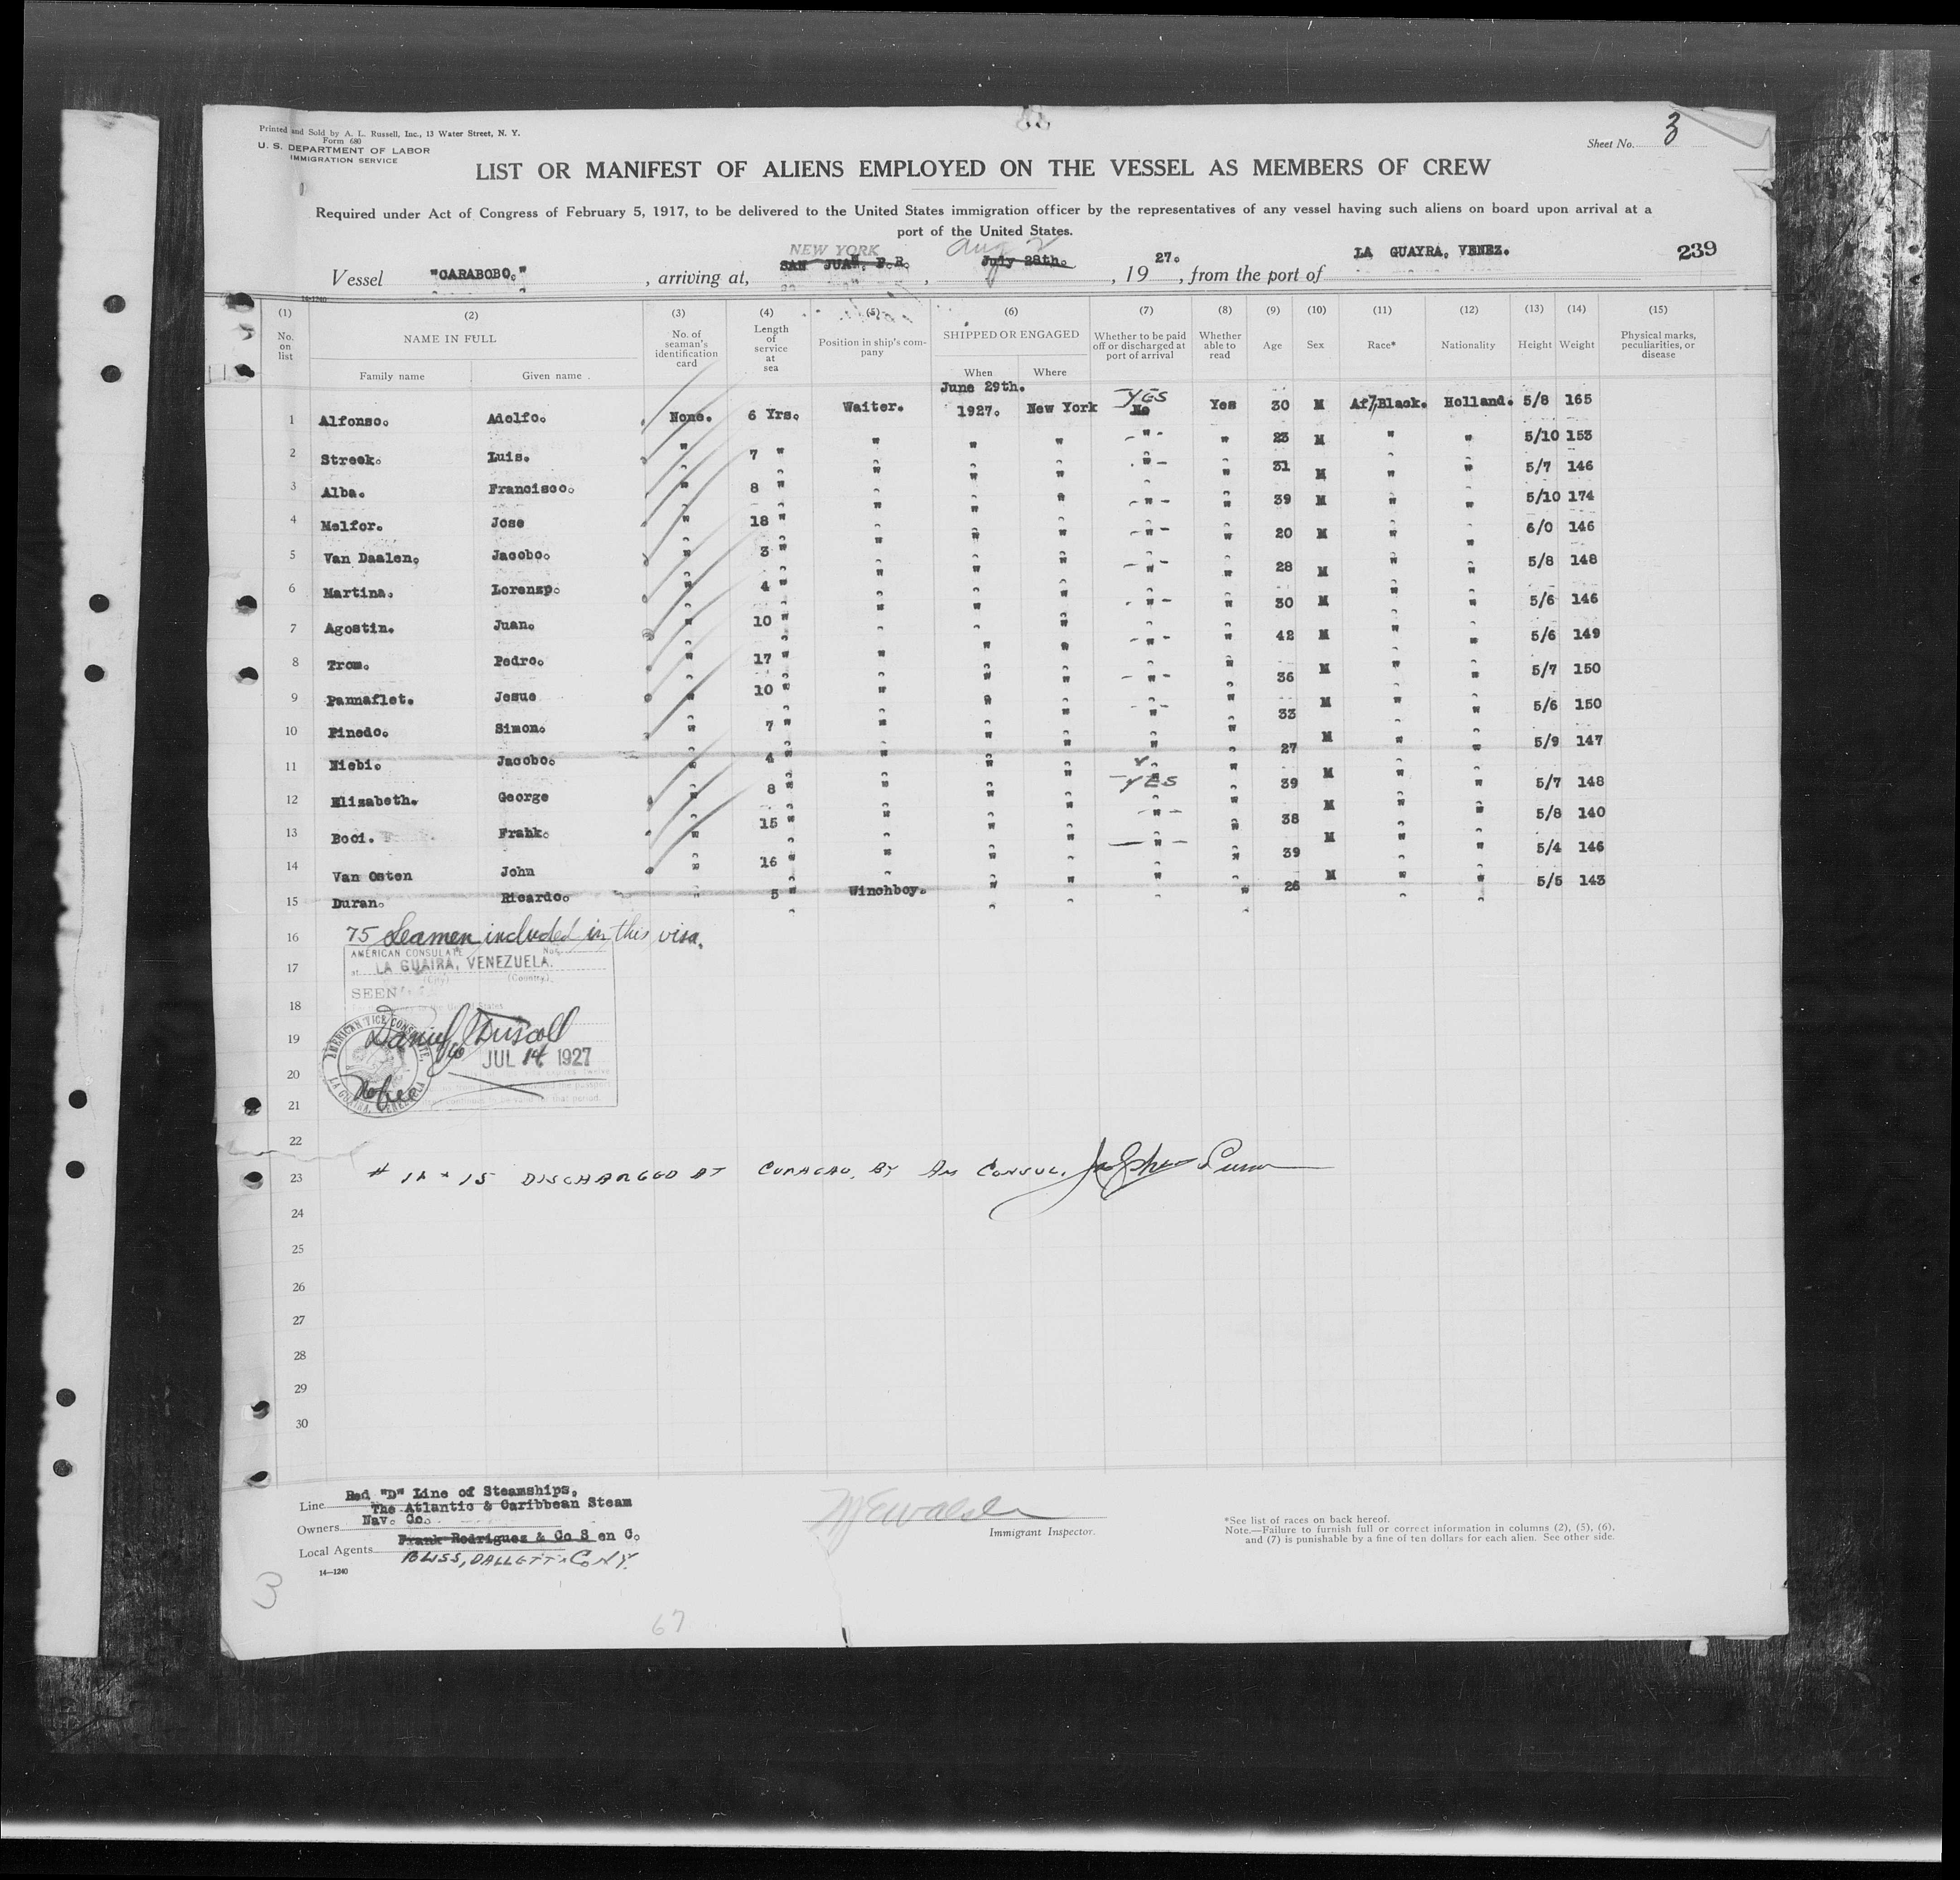 Printed and Sold by A. L. Russell, Inc., 13 Water Street, N. Y.
Form 680
U. S. DEPARTMENT OF LABOR
IMMIGRATION SERVICE
Sheet No. 3
LIST OR MANIFEST OF ALIENS EMPLOYED ON THE VESSEL AS MEMBERS OF CREW
Required under Act of Congress of February 5, 1917, to be delivered to the United States immigration officer by the representatives of any vessel having such aliens on board upon arrival at a
port of the United States.
NEW YORK Aug 2
Vessel "CARABOBO." , arriving at, SAN JUAN, P.R. , July 28th. , 1927. , from the port of LA GUAYRA, VENEZ. 239
14-1240
(1) (2) (3) (4) (5) (6) (7) (8) (9) (10) (11) (12) (13) (14) (15)
No. on list NAME IN FULL No. of seaman's identification card Length of service at sea Position in ship's company SHIPPED OR ENGAGED Whether to be paid off or discharged at port of arrival Whether able to read Age Sex Race* Nationality Height Weight Physical marks, peculiarities, or disease
Family name Given name When Where
June 29th. YES
1 Alfonso. Adolfo. None. 6 Yrs. Waiter. 1927. New York No Yes 30 M Af/Black. Holland. 5/8 165
2 Streek. Luis. " 7 " " " " " " 23 M " " 5/10 153
3 Alba. Francisco. " 8 " " " " " " 31 M " " 5/7 146
4 Melfor. Jose " 18 " " " " " " 39 M " " 5/10 174
5 Van Daalen. Jacobo. " 3 " " " " " " 20 M " " 6/0 146
6 Martina. Lorenzp. " 4 " " " " " " 28 M " " 5/8 148
7 Agostin. Juan. " 10 " " " " " " 30 M " " 5/6 146
8 Trom. Pedro. " 17 " " " " " " 42 M " " 5/6 149
9 Pannaflet. Jesus " 10 " " " " " " 36 M " " 5/7 150
10 Pinedo. Simon. " 7 " " " " " " 33 M " " 5/6 150
11 Niebi. Jacobo. " 4 " " " " " " 27 M " " 5/9 147
12 Elizabeth. George " 8 " " " " YES " 39 M " " 5/7 148
13 Boci. Frank. " 15 " " " " " " 38 M " " 5/8 140
14 Van Osten John " 16 " " " " " " 39 M " " 5/4 146
15 Duran. Ricardo. " 5 " Winchboy. " " " " 26 M " " 5/5 143
16 75 Seamen included in this visa.
AMERICAN CONSULATE No.
17 at LA GUAIRA, VENEZUELA.
(City) (Country)
SEEN
18
19 Daniel J Driscoll
JUL 14 1927
AMERICAN VICE CONSULATE, LA GUAIRA, VENEZUELA
20
No fee
21
22
23 # 11 & 15 DISCHARGED AT CURACAO, BY AM CONSUL.
24
25
26
27
28
29
30
Line Red "D" Line of Steamships,
The Atlantic & Caribbean Steam
Owners Nav. Co.
Local Agents Frank Rodriguez & Co S en C.
BLISS, DALLETT & CO NY.
14—1240
Immigrant Inspector.
*See list of races on back hereof.
Note.—Failure to furnish full or correct information in columns (2), (5), (6),
and (7) is punishable by a fine of ten dollars for each alien. See other side.
3
67